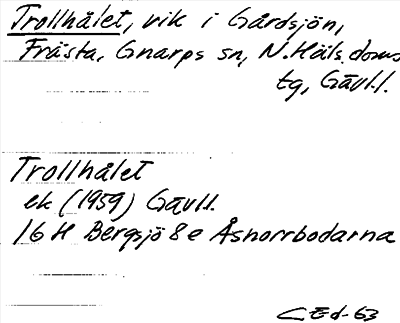 Trollhålet, vik i Gårdsjön,
Frästa, Gnarps sn, N.Häls. doms
tg, Gävl.l.
Trollhålet
ek (1959) Gävl.l.
16 H Bergsjö 8 e Åsnorrbodarna
CEd-63